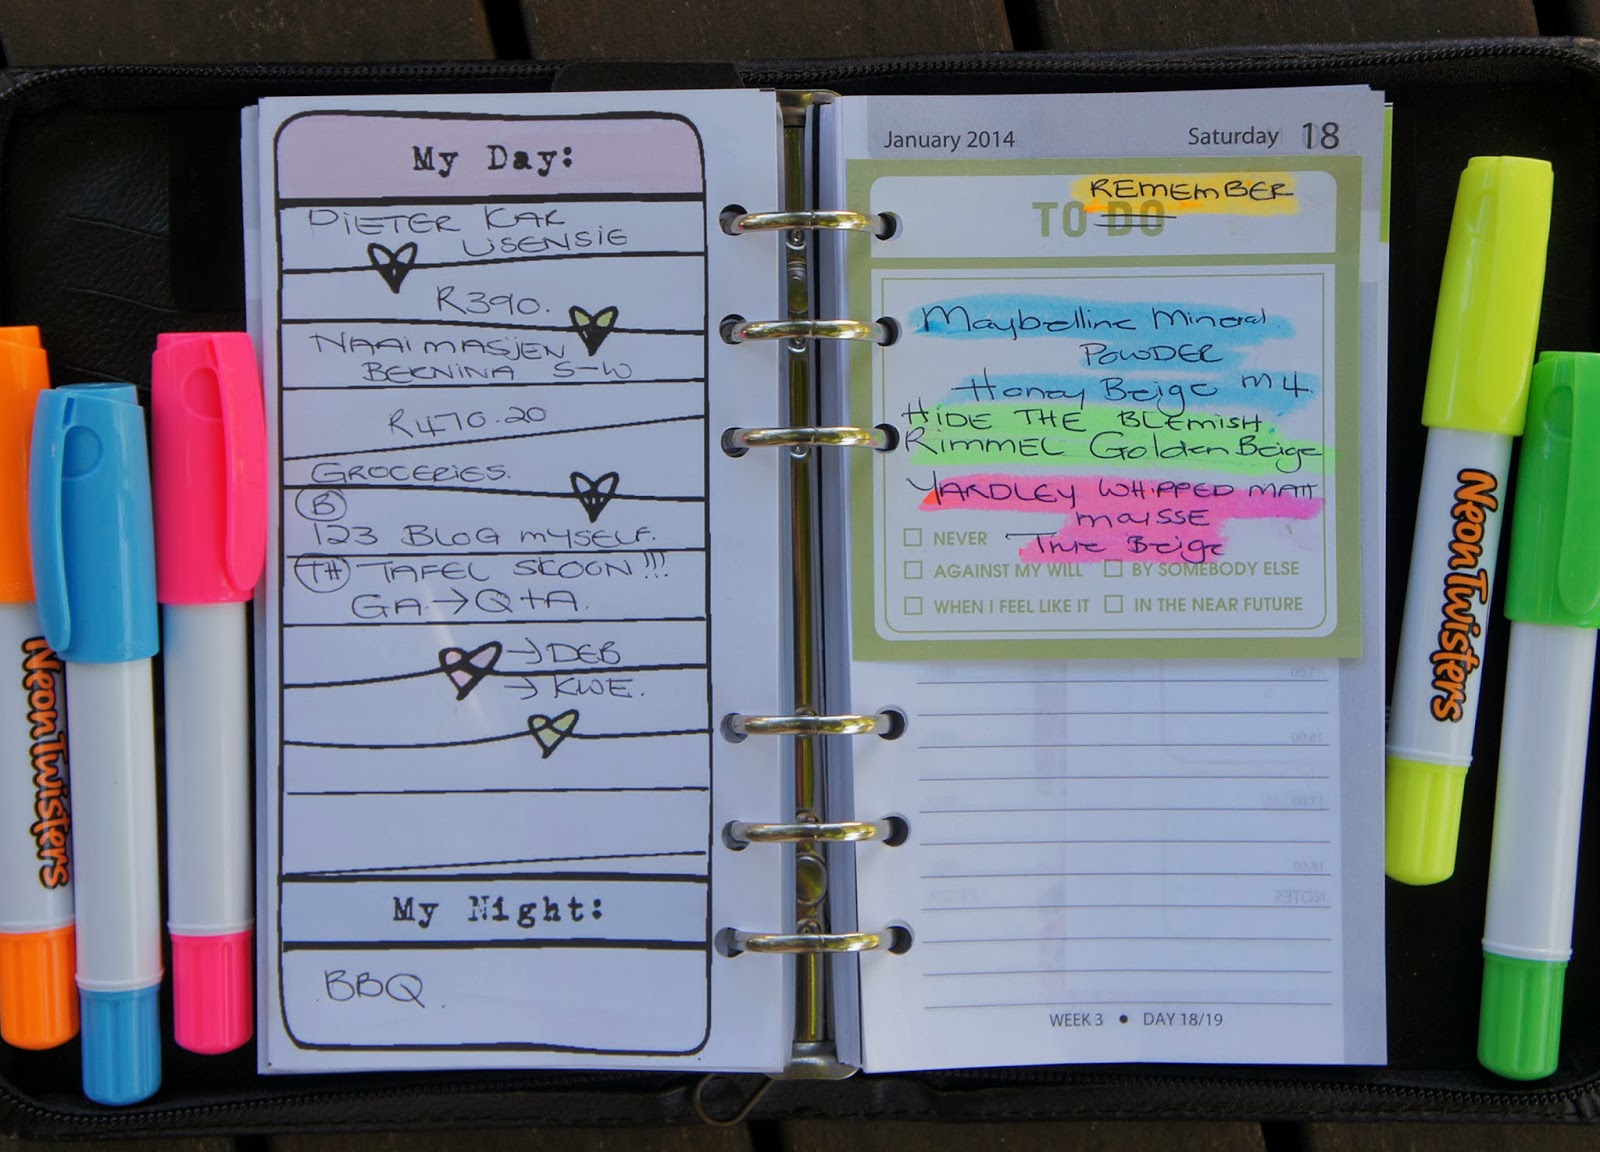 My Day:
DIETER KAR
LISENSIE
R390.
NAAIMASJIEN
BERNINA S-W
R470.20
GROCERIES.
B
123 BLOG MYSELF.
TH TAFEL SKOON!!!
GA → Q+A.
→ DEB
→ KWE.
My Night:
BBQ.
January 2014 Saturday 18
REMEMBER
TO DO
Maybelline Mineral
POWDER
Honey Beige M4
HIDE THE BLEMISH
RIMMEL Golden Beige
YARDLEY WHIPPED MATT
MOUSSE
True Beige
NEVER
AGAINST MY WILL BY SOMEBODY ELSE
WHEN I FEEL LIKE IT IN THE NEAR FUTURE
15.00
16.00
17.00
18.00
NOTES
WEEK 3 • DAY 18/19
NeonTwisters
NeonTwisters